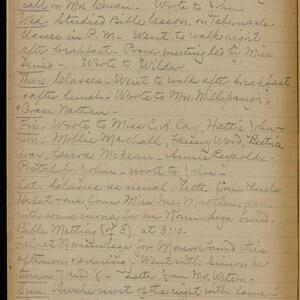 call on Mrs. Cowan - Wrote to John
Wed. Studied Bible lesson on Tabernacle
classes in P.M. - Went to walk right
after breakfast - Prayer meeting led by Miss
- Wrote to Wilder
Thurs. Classes - Went to walk after breakfast
after lunch - Wrote to Mrs.
Nathan -
Fri - Wrote to Miss C. A. Cay, Hattie John-
son - Mollie Marshall, Fanny Wood, Beatrice
Gray, Laura McKean - Annie Reynolds -
Postal for John - wrote to John -
Sat. Classes as usual - Letter from Uncle
Herbert - one from Miss Inez Matthews
with some money for our fund -
Bible Meeting (of 3) at 3:10 -
Fair at for this
afternoon & evening - Went with
tween 7 and 8 - Letter from Mrs. Watson -
Sun Awake most of the night with